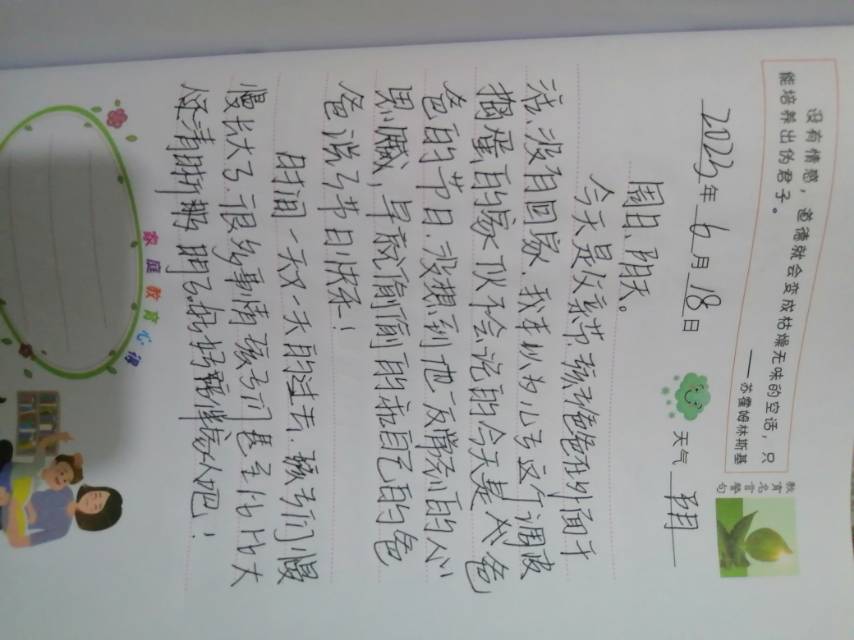 教育名言警句
没有情感，道德就会变成枯燥无味的空话，只
能培养出伪君子。
——苏霍姆林斯基
2023年6月18日 天气 阴
周日 阴天。
今天是父亲节，孩子他爸在外面干
活，没有回家，我本以为儿子这个调皮
捣蛋的家伙不会记的今天是父爸
爸的节日，没想到他
早就偷偷的和自己的爸
爸说了节日快乐！
时间一天又一天的过去，孩子们慢
慢长大了，很多事情孩子们甚至比比大
任清晰
家庭教育心得